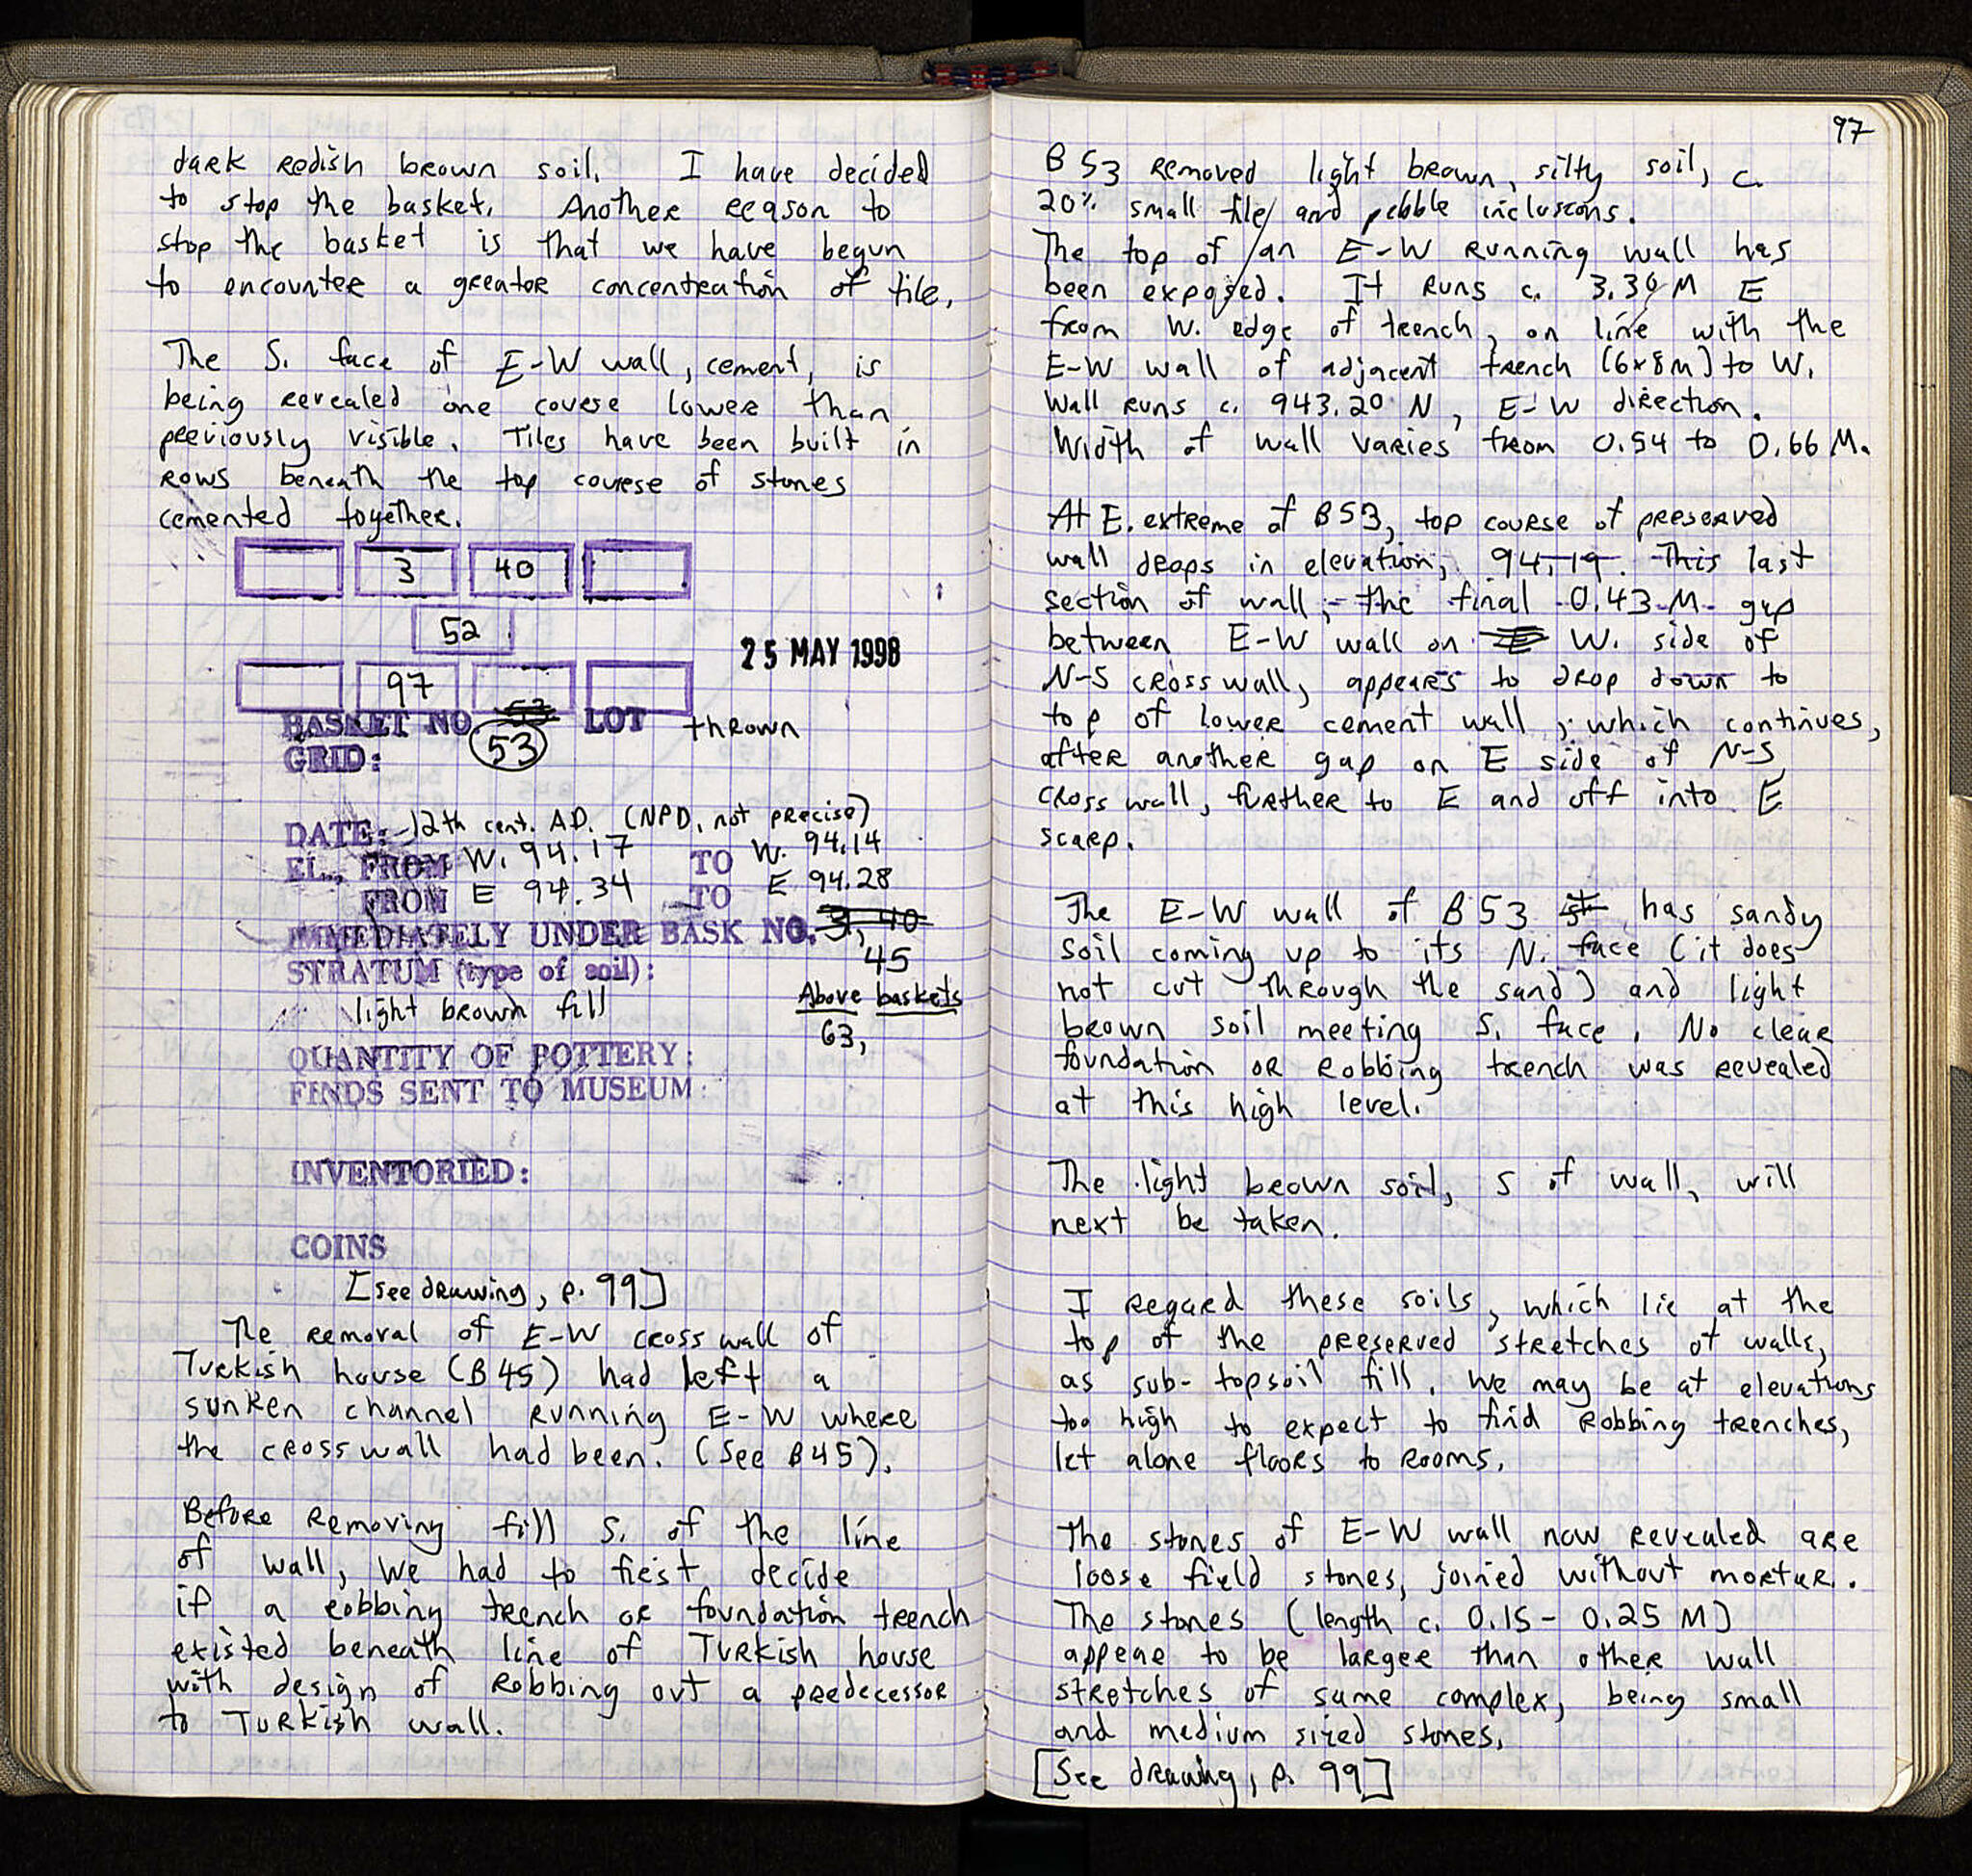 dark redish brown soil. I have decided
to stop the basket. Another reason to
stop the basket is that we have begun
to encounter a greator concentration of tile.
The S. face of E-W wall, cement, is
being revealed one course lower than
previously visible. Tiles have been built in
rows beneath the top course of stones
cemented together.
3 40
52
25 MAY 1998
97
BASKET NO 53 LOT thrown
GRID:
DATE: 12th cent. AD. (NPD, not precise)
EL., FROM W. 94.17 TO W. 94.14
FROM E 94.34 TO E 94.28
IMMEDIATELY UNDER BASK NO. 3, 40
45
STRATUM (type of soil):
Above baskets
light brown fill
63,
QUANTITY OF POTTERY:
FINDS SENT TO MUSEUM:
INVENTORIED:
COINS
[see drawing, p. 99]
The removal of E-W cross wall of
Turkish house (B45) had left a
sunken channel running E-W where
the cross wall had been. (See B45).
Before removing fill S. of the line
of wall, we had to first decide
if a robbing trench or foundation trench
existed beneath line of Turkish house
with design of robbing out a predecessor
to Turkish wall.
97
B53 removed light brown, silty soil, c.
20% small tile and pebble inclusions.
The top of an E-W running wall has
been exposed. It runs c. 3.30 M E
from W. edge of trench, on line with the
E-W wall of adjacent trench (6x8m) to W.
Wall runs c. 943.20 N, E-W direction.
Width of wall varies from 0.54 to 0.66 M.
At E. extreme of B53, top course of preserved
wall drops in elevation, 94.19. This last
section of wall, the final 0.43 M gap
between E-W wall on W. side of
N-S cross wall, appears to drop down to
top of lower cement wall, which continues,
after another gap on E side of N-S
cross wall, further to E and off into E
scarp.
The E-W wall of B53 has sandy
soil coming up to its N. face (it does
not cut through the sand) and light
brown soil meeting S. face. No clear
foundation or robbing trench was revealed
at this high level.
The light brown soil, S of wall, will
next be taken.
I regard these soils, which lie at the
top of the preserved stretches of walls,
as sub-topsoil fill. We may be at elevations
too high to expect to find robbing trenches,
let alone floors to rooms.
The stones of E-W wall now revealed are
loose field stones, joined without mortar.
The stones (length c. 0.15 - 0.25 M)
appear to be larger than other wall
stretches of same complex, being small
and medium sized stones.
[See drawing, p. 99]